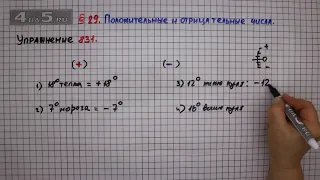 4 на 5.ru
§ 29. Положительные и отрицательные числа.
Упражнение 831.
(+) (-)
+
0
-
1) 18° тепла = +18°
2) 7° мороза = -7°
3) 12° ниже нуля: -12
4) 16° выше нуля